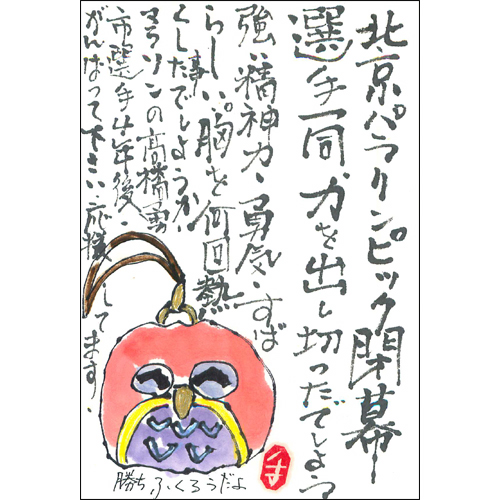 北京パラリンピック閉幕
選手一同、力を出し切ったでしょう
強い精神力、勇気、すば
らしい事、胸を何回熱
くしたでしょうか、
マラソンの高橋勇
市選手4年後、
がんばって下さい、応援してます、
勝ちふくろうだよ